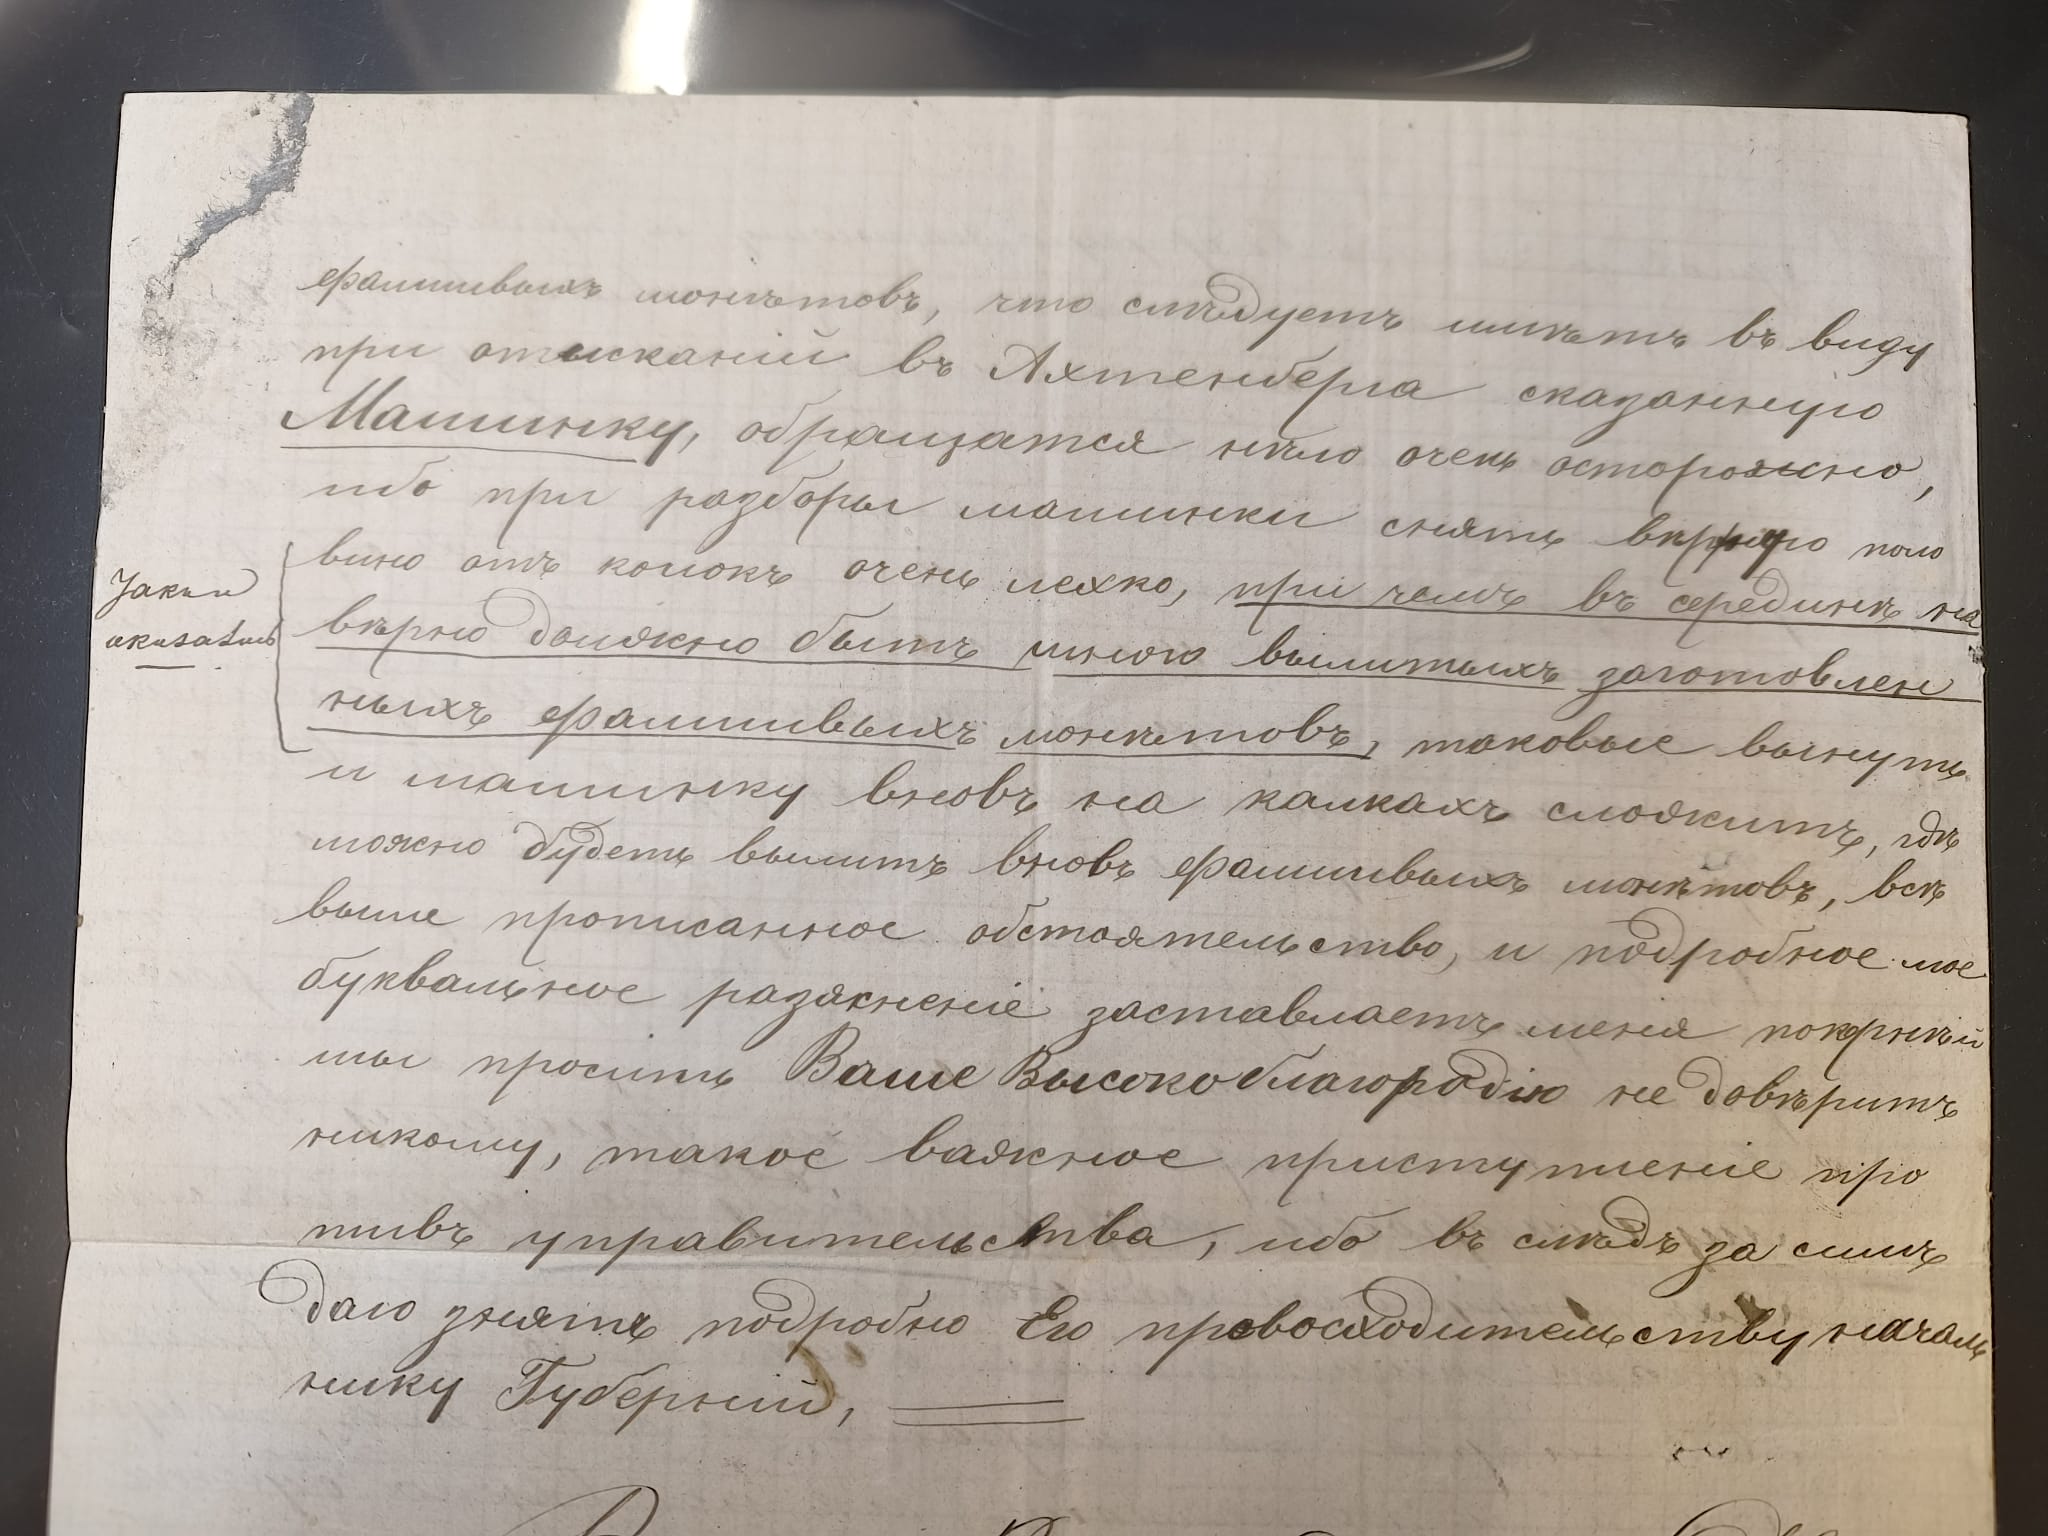 фалшивыхъ монѣтовъ, что слѣдуетъ имѣтъ въ виду
при отысканіи въ Ахтенберга сказанную
Машинку, обращатся нѣло очень осторожно,
ибо при разборы машинки снять поло
вино отъ колокъ очень лехко, при чемъ въ серединѣ на
вѣрно должно быть много вылитыхъ заготовлен
ныхъ фалшивыхъ монѣтовъ, таковые вынуть
и машинку вновъ на калкахъ сложитъ, гдѣ
можно будеть вылитъ вновъ фалшивыхъ монѣтовъ, всѣ
выше прописанное обстоятельство, и подробное мое
буквальное разякнение заставлаетъ меня покрнѣй
шы просить Ваше Высокоблагородію не довѣритъ
никому, такое важное приступленіе про
тивъ управительства, ибо въ слѣдъ за симъ
даю знятъ подробно Его превосходительству началь
нику Губерніи,